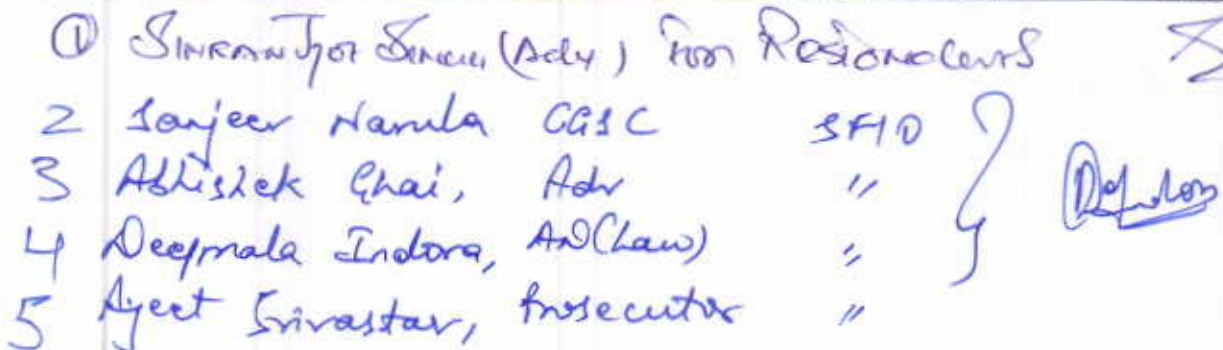 ① Simranjot Singh (Adv) For Respondents
2 Sanjeev Narula CGSC SFIO
3 Abhishek Ghai, Adv "
4 Deepmala Indora, AD(Law) "
5 Ajeet Srivastav, Prosecutor "